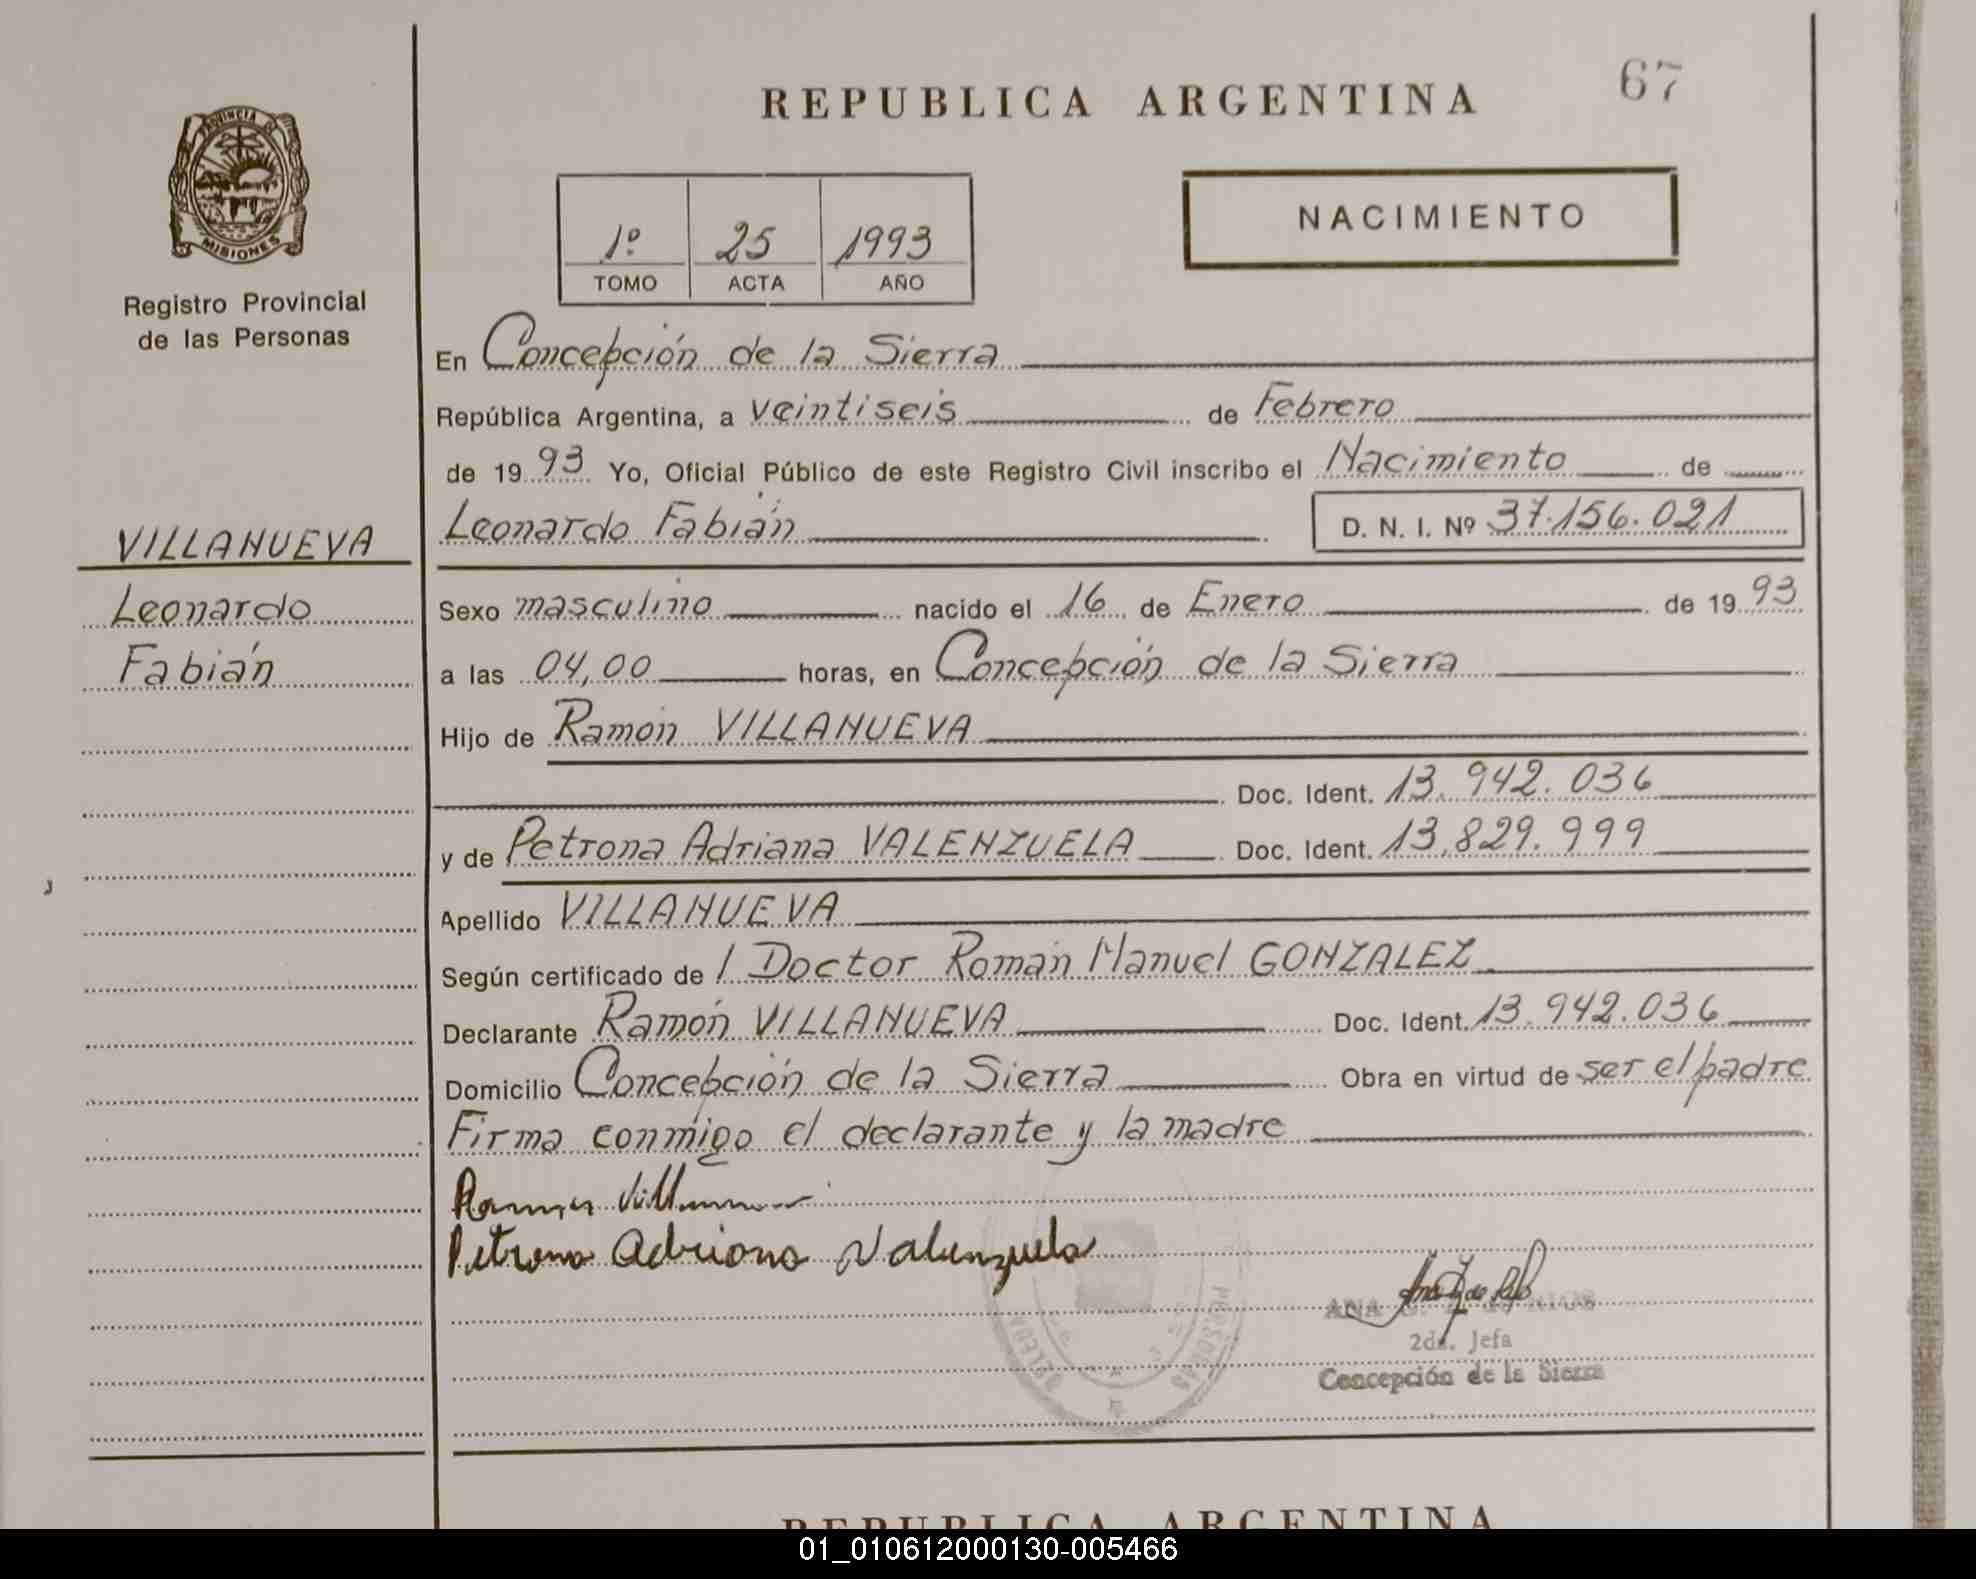 REPUBLICA ARGENTINA
67
PROVINCIA DE
MISIONES
Registro Provincial
de las Personas
1º 25 1993
TOMO ACTA AÑO
NACIMIENTO
En Concepción de la Sierra
República Argentina, a veintiseis de Febrero
de 1993 Yo, Oficial Público de este Registro Civil inscribo el Nacimiento de
VILLANUEVA
Leonardo
Fabián
Leonardo Fabián D. N. I. Nº 37.156.021
Sexo masculino nacido el 16 de Enero de 1993
a las 04,00 horas, en Concepción de la Sierra
Hijo de Ramón VILLANUEVA
Doc. Ident. 13.942.036
y de Petrona Adriana VALENZUELA Doc. Ident. 13.829.999
Apellido VILLANUEVA
Según certificado de / Doctor Román Manuel GONZALEZ
Declarante Ramón VILLANUEVA Doc. Ident. 13.942.036
Domicilio Concepción de la Sierra Obra en virtud de ser el padre
Firma conmigo el declarante y la madre
Petrona Adriana Valenzuela
ANA RIOS
2da. Jefa
Concepción de la Sierra
PERSONAS
REPUBLICA ARGENTINA
01_010612000130-005466